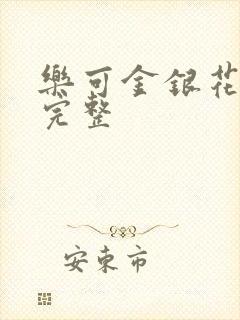 樂可金銀花
完整
安東市